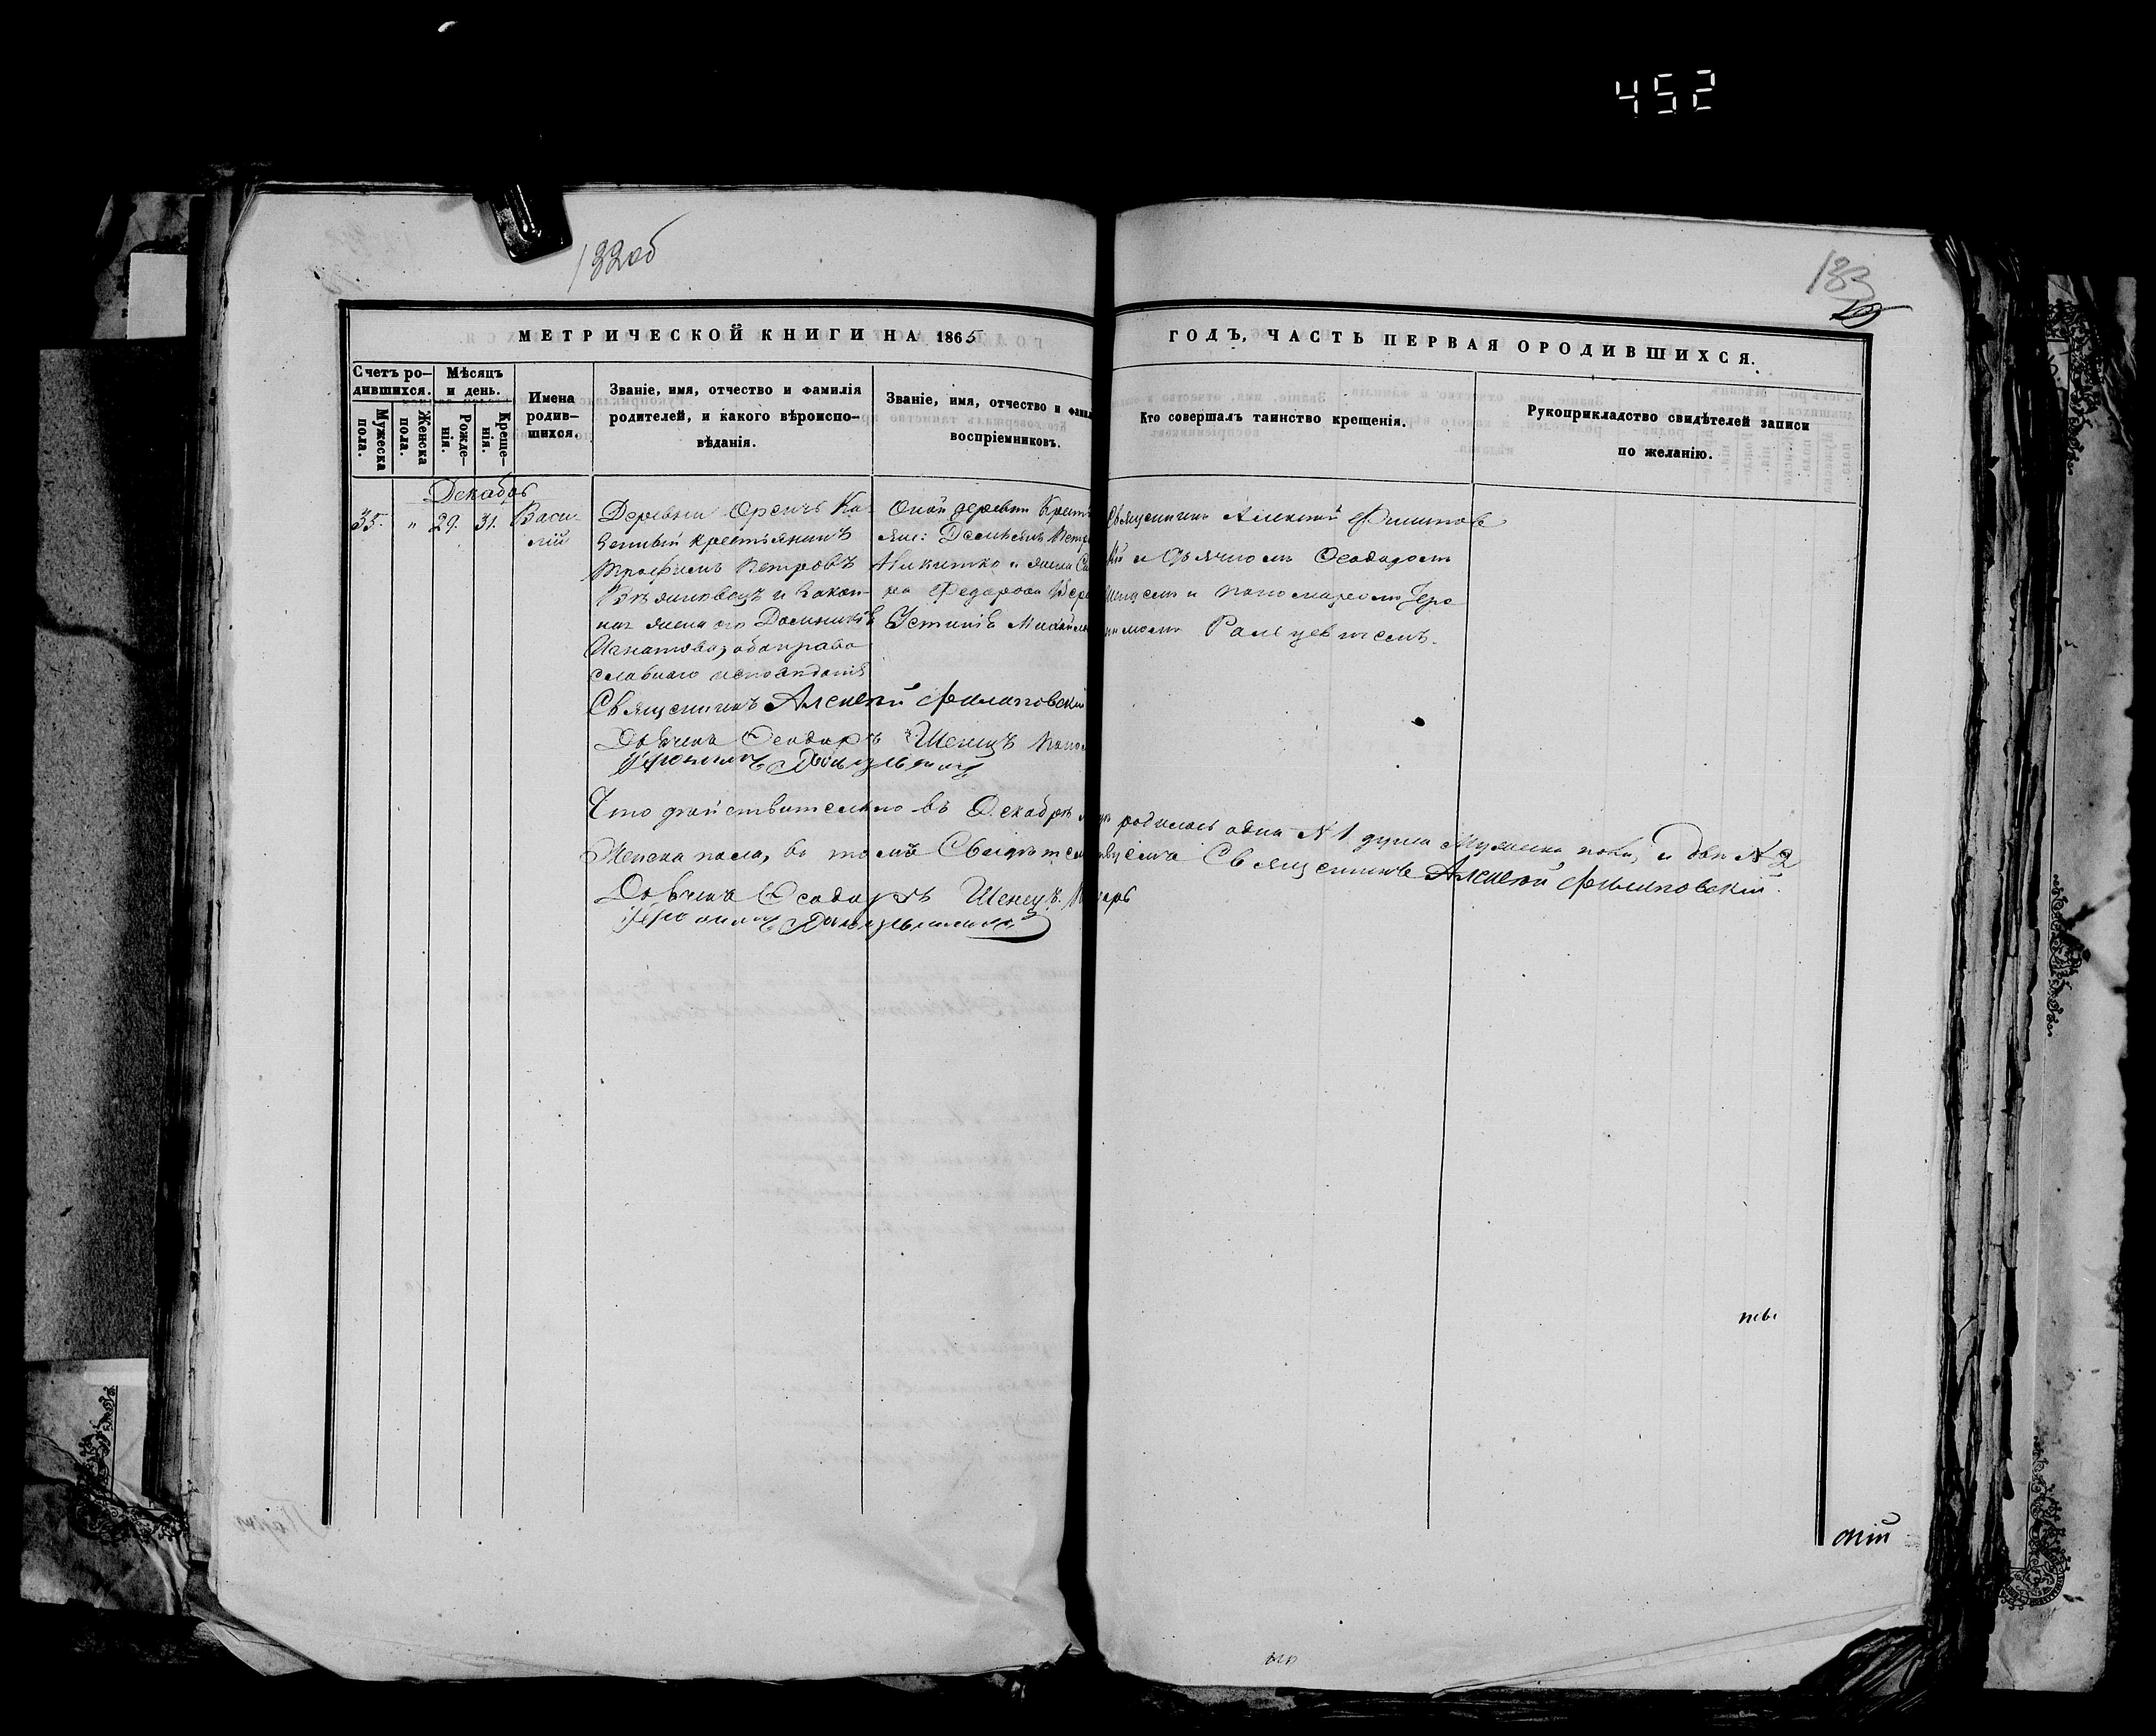 452
132об
133
МЕТРИЧЕСКОЙ КНИГИ НА 1865
ГОДЪ, ЧАСТЬ ПЕРВАЯ ОРОДИВШИХСЯ.
Счетъ ро-
дившихся.
Мужеска
пола.
Женска
пола.
Мѣсяцъ
и день.
Рожде-
нія.
Креще-
нія.
Имена
родив-
шихся.
Званіе, имя, отчество и фамилія
родителей, и какого вѣроиспо-
вѣданія.
Званіе, имя, отчество и фами
воспріемниковъ.
Кто совершалъ таинство крещенія.
Рукоприкладство свидѣтелей записи
по желанію.
Декабрь
35. " 29. 31. Васи-
лій
Деревни Ка-
зенный крестьянинъ
Трофимъ Петровъ
и закон-
ная жена его Домникія
Игнатова, оба право
славнаго исповѣданія
Оной деревни Крест
яне: Демьянъ Петр
Никитко и жена
ра Федорова
Устинія Михайл
Священникъ Алексій Филипов
кій и Дьячкомъ Феодоромъ
Шенцемъ и пономаремъ Іеро
нимомъ
Священникъ Алексій Филиповскій
Дьячекъ Феодоръ Шенецъ Поно
Іеронимъ
Что дѣйствительно въ Декабрѣ родилось одна № 1 душа Мужеска пола, и двѣ № 2
Женска пола, въ томъ Свидѣтельствуемъ Священникъ Алексій Филиповскій.
Дьячекъ Феодоръ Шенецъ.
Іеронимъ